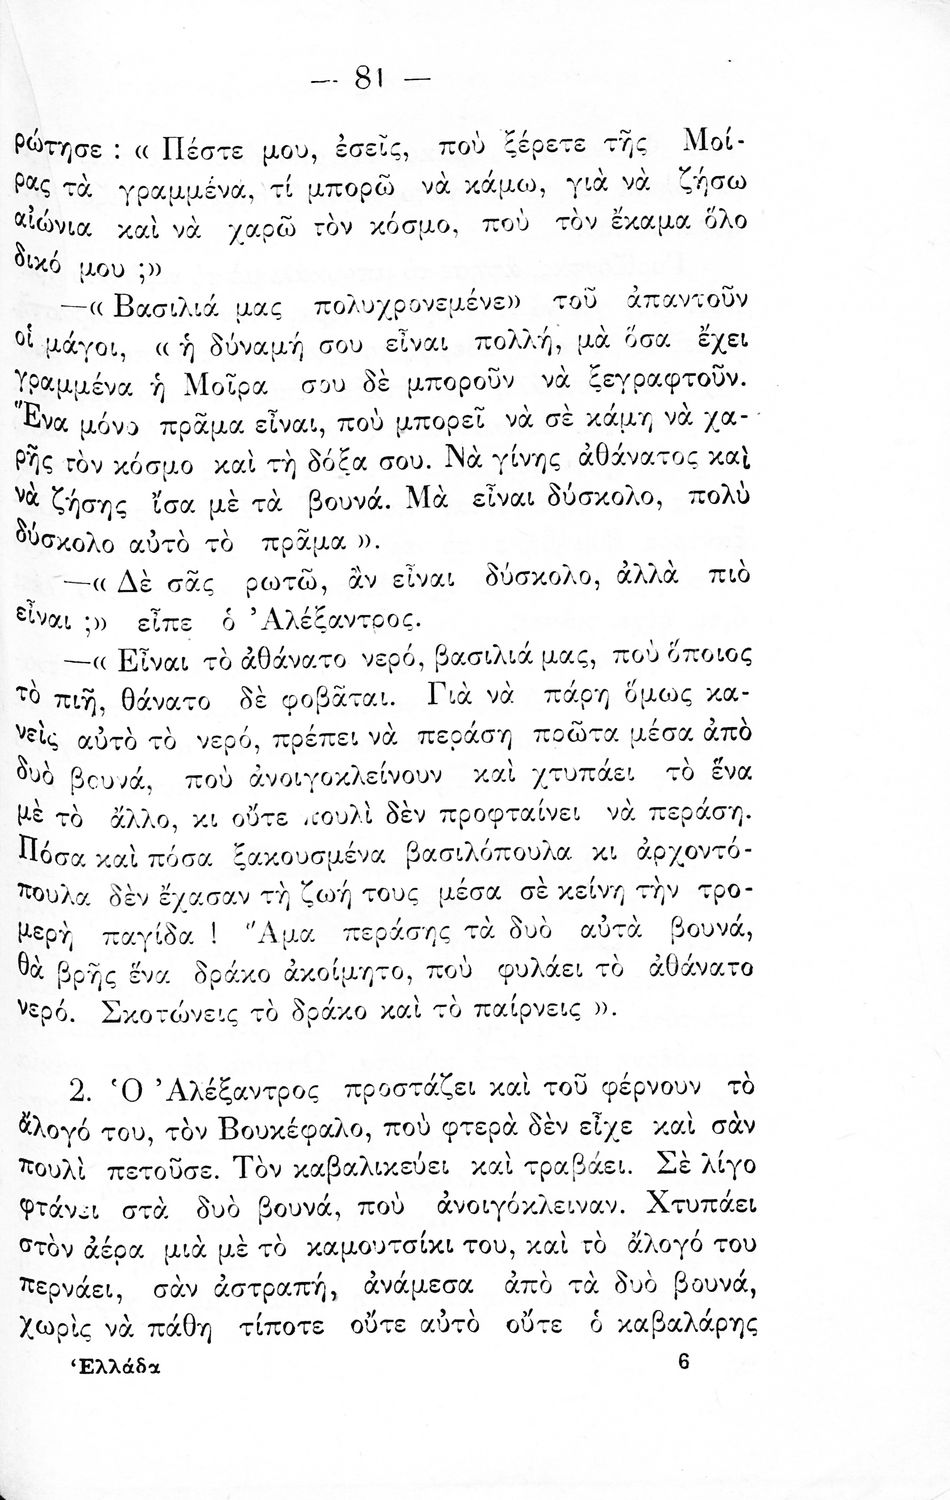 — 81 —
ρώτησε : « Πέστε μου, ἐσεῖς, ποὺ ξέρετε τῆς Μοί-
ρας τὰ γραμμένα, τί μπορῶ νὰ κάμω, γιὰ νὰ ζήσω
αἰώνια καὶ νὰ χαρῶ τὸν κόσμο, ποὺ τὸν ἔκαμα ὅλο
δικό μου ;»
—« Βασιλιά μας πολυχρονεμένε» τοῦ ἀπαντοῦν
οἱ μάγοι, « ἡ δύναμή σου εἶναι πολλή, μὰ ὅσα ἔχει
γραμμένα ἡ Μοῖρα σου δὲ μποροῦν νὰ ξεγραφτοῦν.
Ἕνα μόνο πρᾶμα εἶναι, ποὺ μπορεῖ νὰ σὲ κάμῃ νὰ χα-
ρῇς τὸν κόσμο καὶ τὴ δόξα σου. Νὰ γίνῃς ἀθάνατος καὶ
νὰ ζήσῃς ἴσα μὲ τὰ βουνά. Μὰ εἶναι δύσκολο, πολὺ
δύσκολο αὐτὸ τὸ πρᾶμα ».
—« Δὲ σᾶς ρωτῶ, ἂν εἶναι δύσκολο, ἀλλὰ πιὸ
εἶναι ;» εἶπε ὁ Ἀλέξαντρος.
—« Εἶναι τὸ ἀθάνατο νερό, βασιλιά μας, ποὺ ὅποιος
τὸ πιῇ, θάνατο δὲ φοβᾶται. Γιὰ νὰ πάρῃ ὅμως κα-
νεὶς αὐτὸ τὸ νερό, πρέπει νὰ περάσῃ πρῶτα μέσα ἀπὸ
δυὸ βουνά, ποὺ ἀνοιγοκλείνουν καὶ χτυπάει τὸ ἕνα
μὲ τὸ ἄλλο, κι οὔτε πουλὶ δὲν προφταίνει νὰ περάσῃ.
Πόσα καὶ πόσα ξακουσμένα βασιλόπουλα κι ἀρχοντό-
πουλα δὲν ἔχασαν τὴ ζωή τους μέσα σὲ κείνη τὴν τρο-
μερὴ παγίδα ! Ἅμα περάσῃς τὰ δυὸ αὐτὰ βουνά,
θὰ βρῇς ἕνα δράκο ἀκοίμητο, ποὺ φυλάει τὸ ἀθάνατο
νερό. Σκοτώνεις τὸ δράκο καὶ τὸ παίρνεις ».
2. Ὁ Ἀλέξαντρος προστάζει καὶ τοῦ φέρνουν τὸ
ἄλογό του, τὸν Βουκέφαλο, ποὺ φτερὰ δὲν εἶχε καὶ σὰν
πουλὶ πετοῦσε. Τὸν καβαλικεύει καὶ τραβάει. Σὲ λίγο
φτάνει στὰ δυὸ βουνά, ποὺ ἀνοιγόκλειναν. Χτυπάει
στὸν ἀέρα μιὰ μὲ τὸ καμουτσίκι του, καὶ τὸ ἄλογό του
περνάει, σὰν ἀστραπή, ἀνάμεσα ἀπὸ τὰ δυὸ βουνά,
χωρὶς νὰ πάθῃ τίποτε οὔτε αὐτὸ οὔτε ὁ καβαλάρης
Ἑλλάδα 6